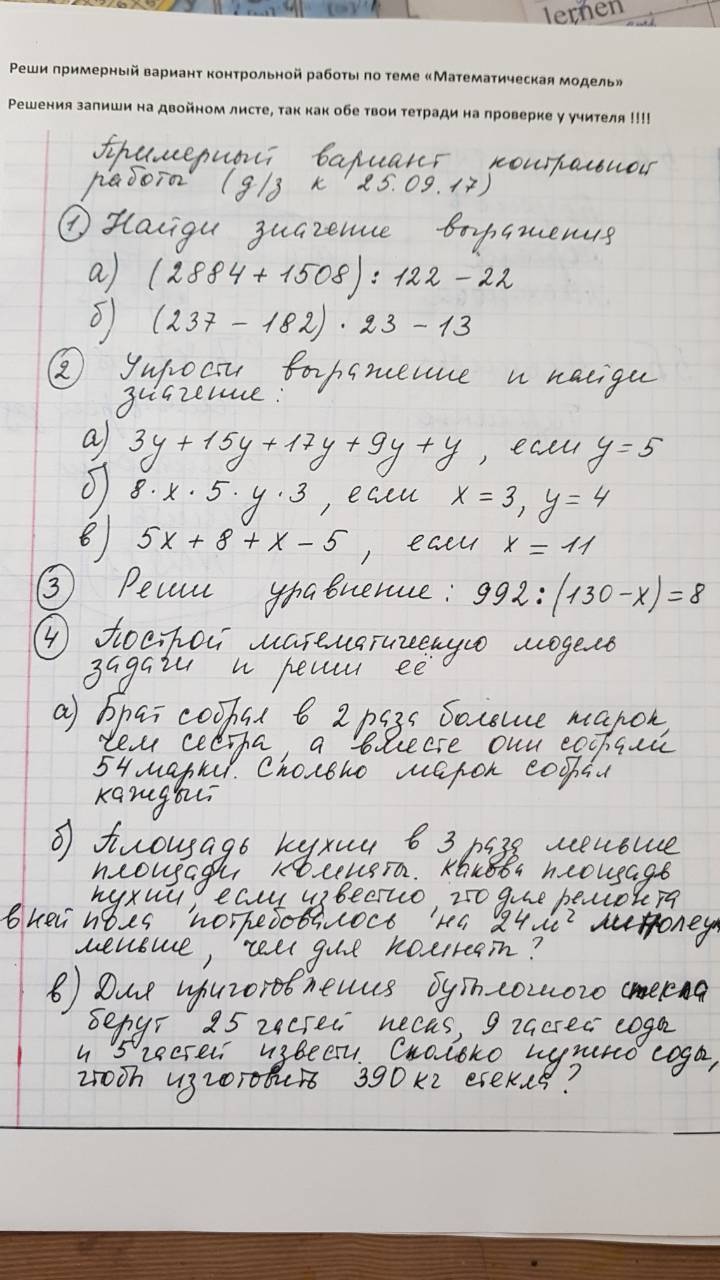 lernen
Реши примерный вариант контрольной работы по теме «Математическая модель»
Решения запиши на двойном листе, так как обе твои тетради на проверке у учителя !!!!
Примерный вариант контрольной
работы (д/з к 25.09.17)
1. Найди значение выражения
а) (2884 + 1508) : 122 - 22
б) (237 - 182) · 23 - 13
2 Упрости выражение и найди
значение:
а) 3у + 15у + 17у + 9у + у , если у = 5
б) 8 · х · 5 · у · 3 , если х = 3, у = 4
в) 5х + 8 + х - 5 , если х = 11
3 Реши уравнение: 992 : (130 - х) = 8
4 Построй математическую модель
задачи и реши её
а) Брат собрал в 2 раза больше марок,
чем сестра, а вместе они собрали
54 марки. Сколько марок собрал
каждый
б) Площадь кухни в 3 раза меньше
площади комнаты. Какова площадь
кухни, если известно, что для ремонта
в ней пола потребовалось на 24 м²
меньше, чем для комнаты?
в) Для приготовления бутылочного стекла
берут 25 частей песка, 9 частей соды
и 5 частей извести. Сколько нужно соды,
чтобы изготовить 390 кг стекла?